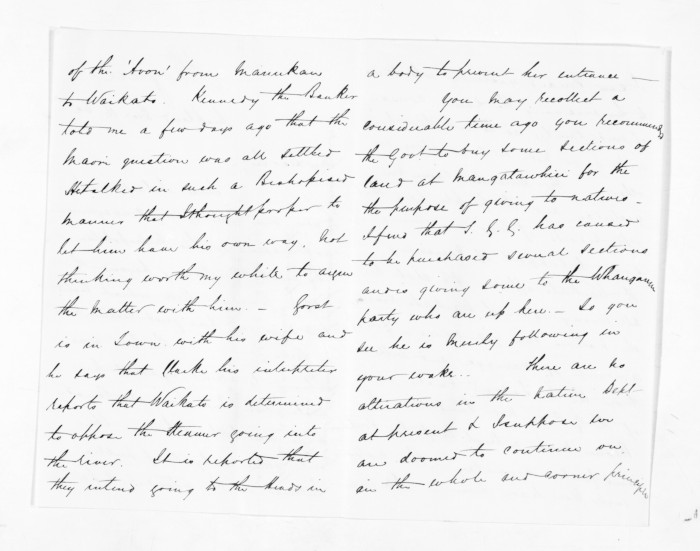 of the 'Avon' from Manukau
to Waikato. Kennedy the Banker
told me a few days ago that the
Maori question was all settled
He talked in such a Bishopised
manner that I thought proper to
let him have his own way, not
thinking worth my while to argue
the matter with him. — Gorst
is in Town with his wife and
he says that Clarke his interpreter
reports that Waikato is determined
to oppose the Steamer going into
the river. It is reported that
they intend going to the Heads in
a body to prevent her entrance —
You may recollect a
considerable time ago you recommended
the Govt to buy some sections of
land at Mangatawhiri for the
the purpose of giving to natives -
I find that S. G. G. has caused
to be purchased several sections
and is giving some to the Whanganui
party who are up here - So you
see he is merely following in
your wake.. There are no
alterations in the native Dept.
at present & I suppose we
are doomed to continue on
in the whole and sooner principle